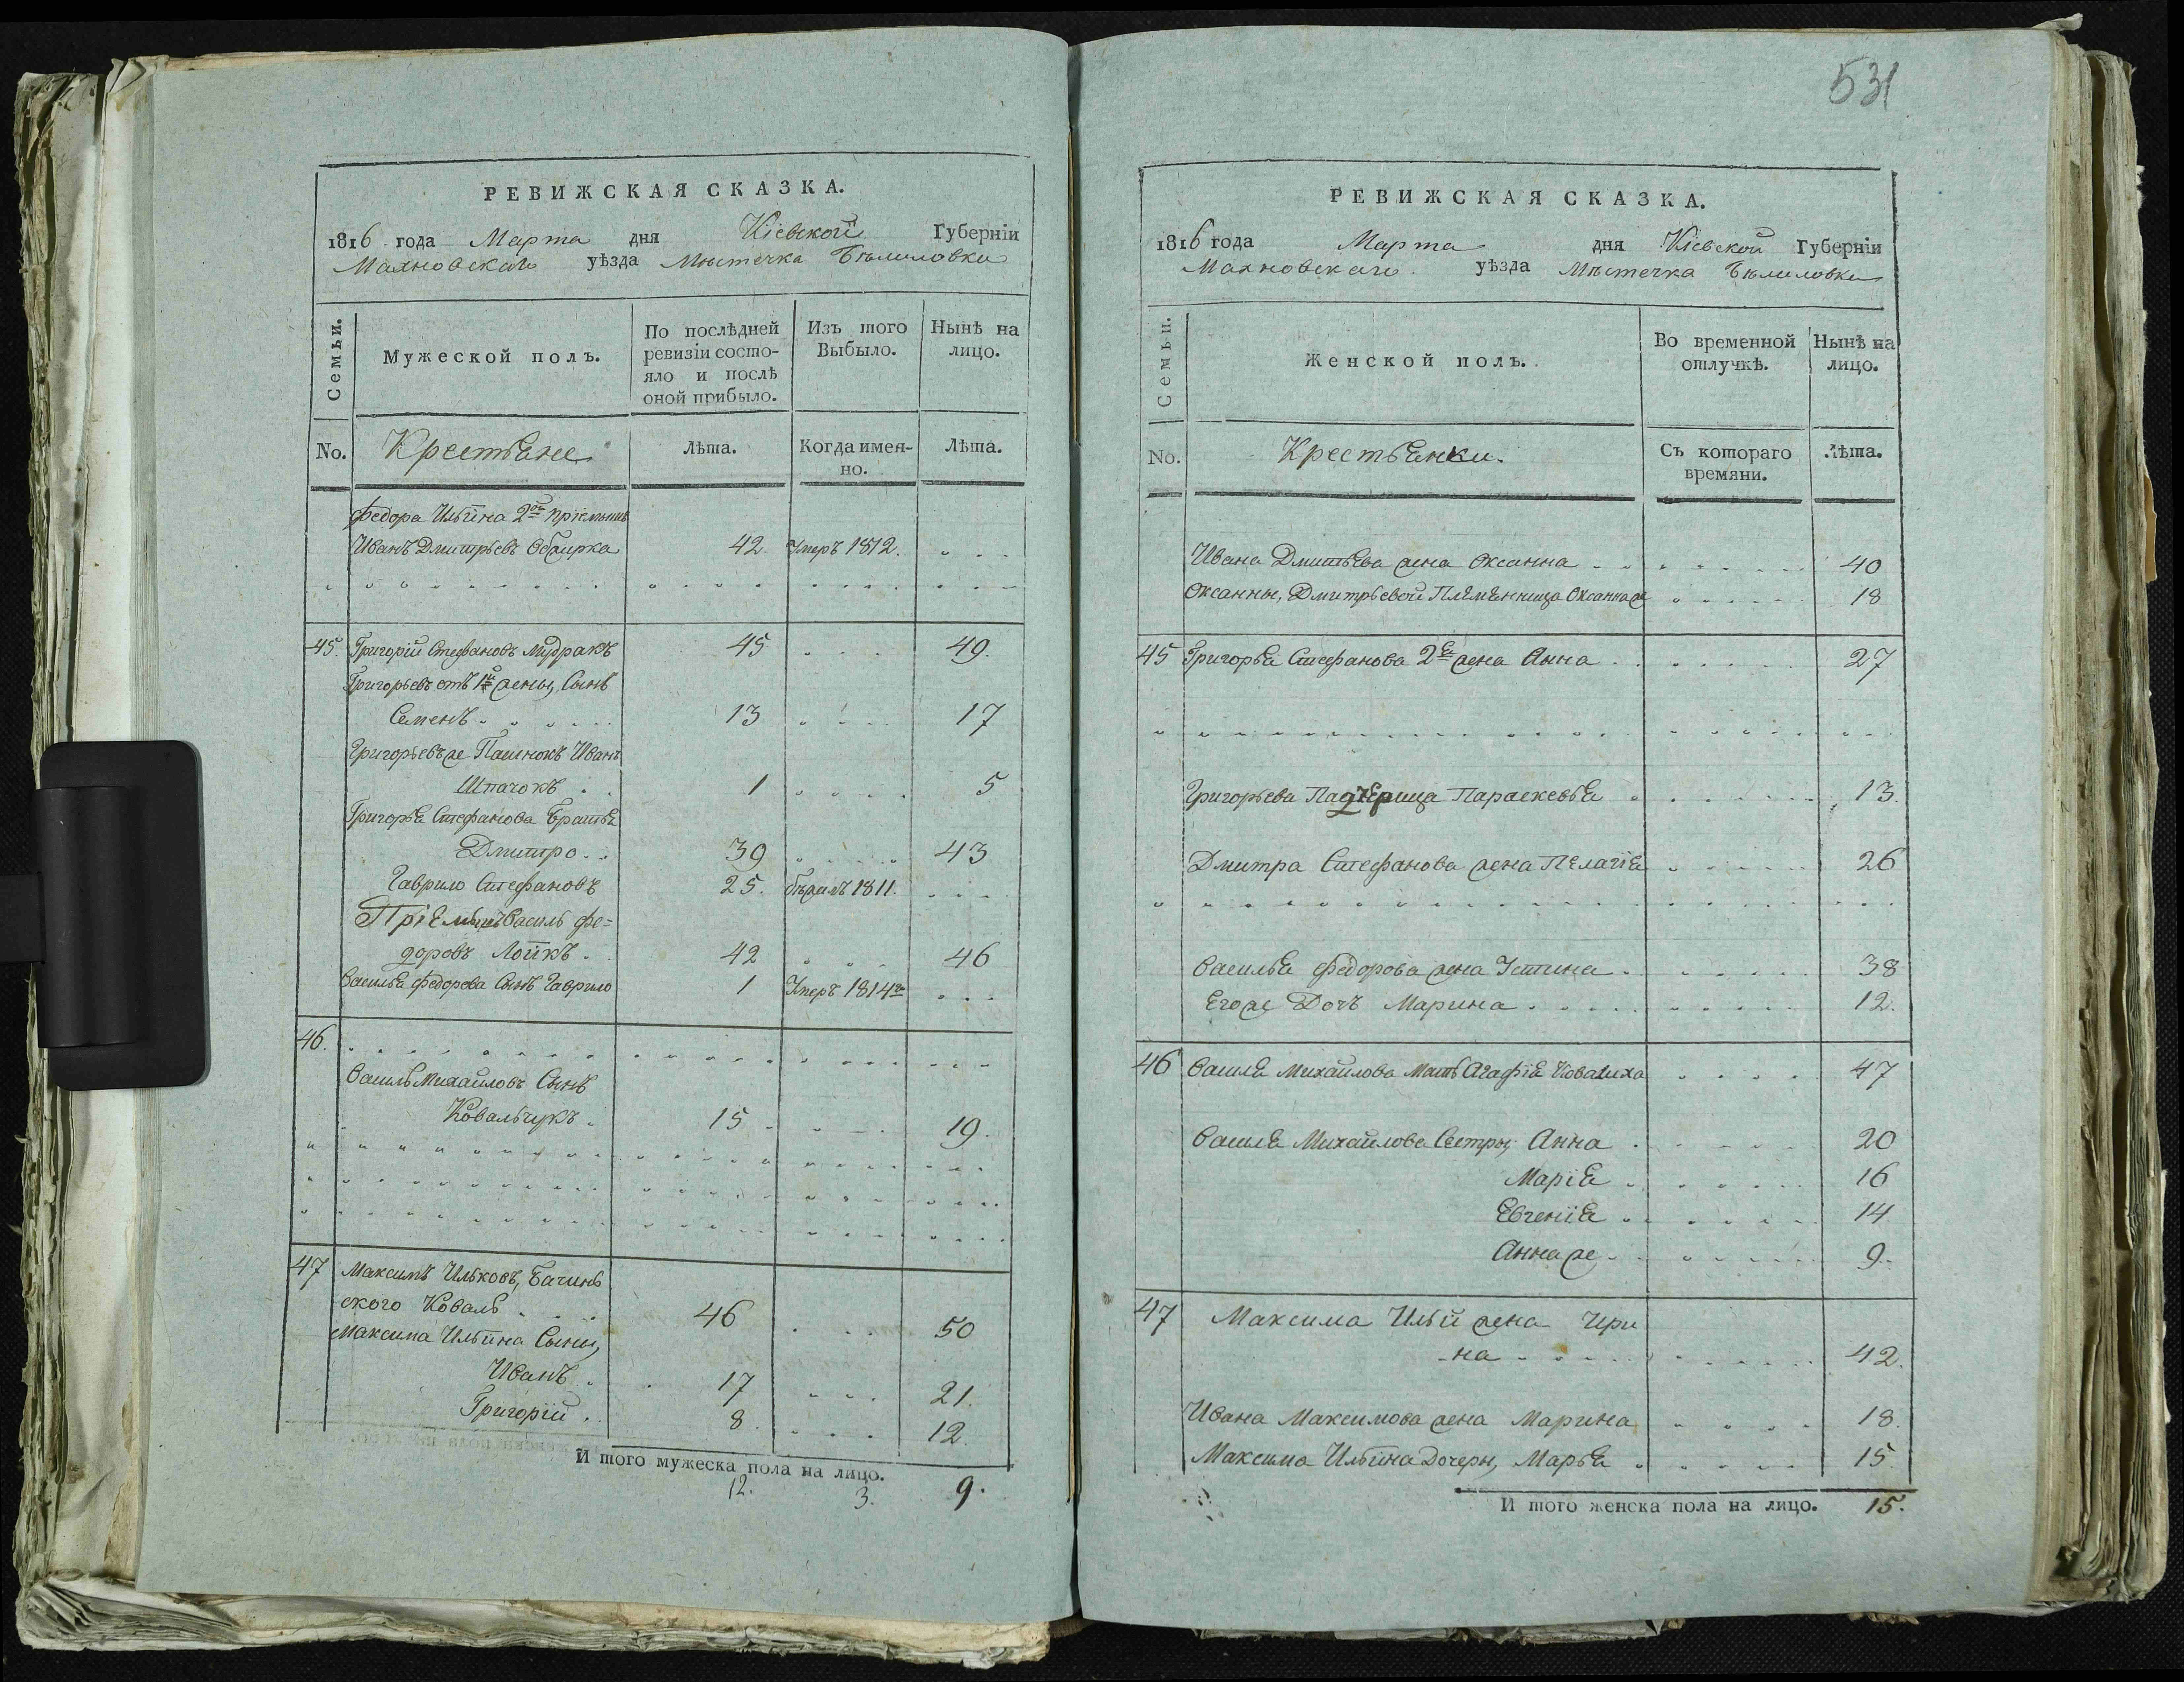 РЕВИЖСКАЯ СКАЗКА.
1816 года Марта дня Кіевской Губерніи
Махновскаго уѣзда Мѣстечка Бѣлиловки
Семьи.
Мужеской полъ.
По послѣдней ревизіи состояло и послѣ оной прибыло.
Изъ того Выбыло.
Нынѣ на лицо.
No. Крестьяне Лѣта. Когда именно. Лѣта.
Федора Ильина 2й пріемышъ
Иванъ Дмитріевъ 42. Умеръ 1812.
45. Григорій Стефановъ Мудракъ 45 49.
Григорьевъ отъ 1й жены, Сынъ
Семенъ 13 17
Григорьевъ же Пасинокъ Иванъ
Шпачокъ 1 5
Григорья Стефанова Братья
Дмитро 39 43
Гаврило Стефановъ 25. бѣжалъ 1811.
Пріемышъ Василь Фе=
доровъ Лойкъ 42 46
Василья Федорова Сынъ Гаврило 1 Умеръ 1814го
46.
Василь Михайловъ Сынъ
Ковальчукъ 15 19.
47 Максимъ Ильковъ, Бачинь
ского Коваль 46 50
Максима Ильина Сыны,
Иванъ 17 21.
Григорій 8 12.
И того мужеска пола на лицо.
12. 3. 9.
531
РЕВИЖСКАЯ СКАЗКА.
1816 года Марта дня Кіевской Губерніи
Махновскаго уѣзда Мѣстечка Бѣлиловки
Семьи.
Женской полъ.
Во временной отлучкѣ.
Нынѣ на лицо.
No. Крестьянки. Съ котораго времяни. Лѣта.
Ивана Дмитьева жена Оксанна 40
Оксанны, Дмитріевой Племянница Оксанна же 18
45 Григорья Стефанова 2я жена Анна 27
Григорьева Падчерица Параскевья 13.
Дмитра Стефанова жена Пелагія 26
Василья Федорова жена Устина 38
Его же Дочъ Марина 12.
46 Василя Михайлова Мать Агафія Ковалиха 47
Василя Михайлова Сестры, Анна 20
Марія 16
Евгенія 14
Анна же 9.
47 Максима Ильи жена Ири
на 42.
Ивана Максимова жена Марина 18.
Максима Ильина Дочери, Марья 15.
И того женска пола на лицо. 15.